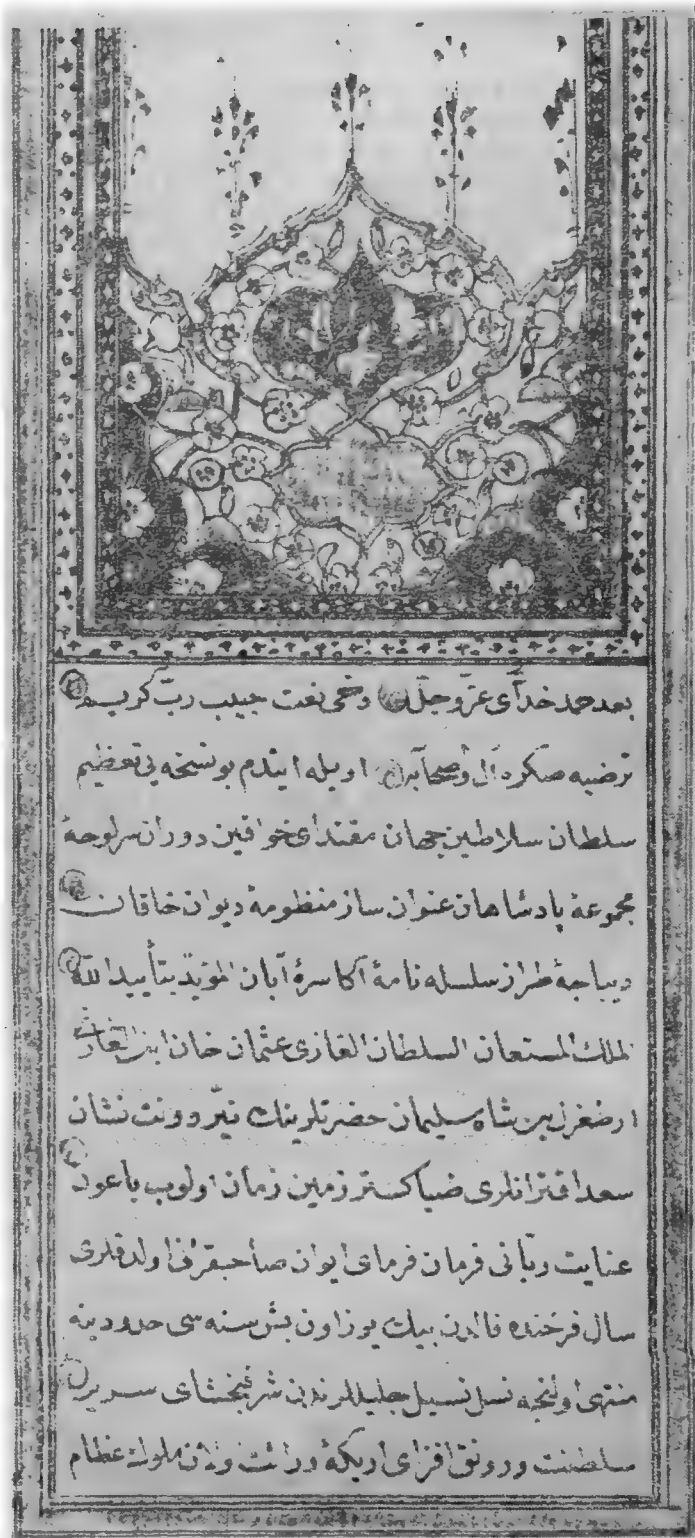 بعد حمد خدای عز و جل و نعت حبیب رب کریم
ترضیه صکره آل و اصحابه اویله ایتدم بو نسخه یی تعظیم
سلطان سلاطین جهان مقتدای خواقین دوران سرلوحهٔ
مجموعهٔ پادشاهان عنوان ساز منظومهٔ دیوان خاقان
دیباجهٔ طراز سلسله نامهٔ آکاسرهٔ آبان المؤید بتأیید الله
الملك المستعان السلطان الغازی عثمان خان ابن الغازی
ارضغرل بن شاه سلیمان حضرتلرینك نیر دونت نشان
سعد اقترانلری ضیاکستر زمین زمان اولوب باعون
عنایت ربانی فرمان فرمای ایوان صاحبقرانی اولدقلری
سال فرخنده فالدن بیك یوز اون بش سنه سی حدودینه
منتهی اولنجه نسل نسیل جلیللرندن شرفبخشای سریر
سلطنت و رونق افزای اریکهٔ وراثت اولان ملوك عظام